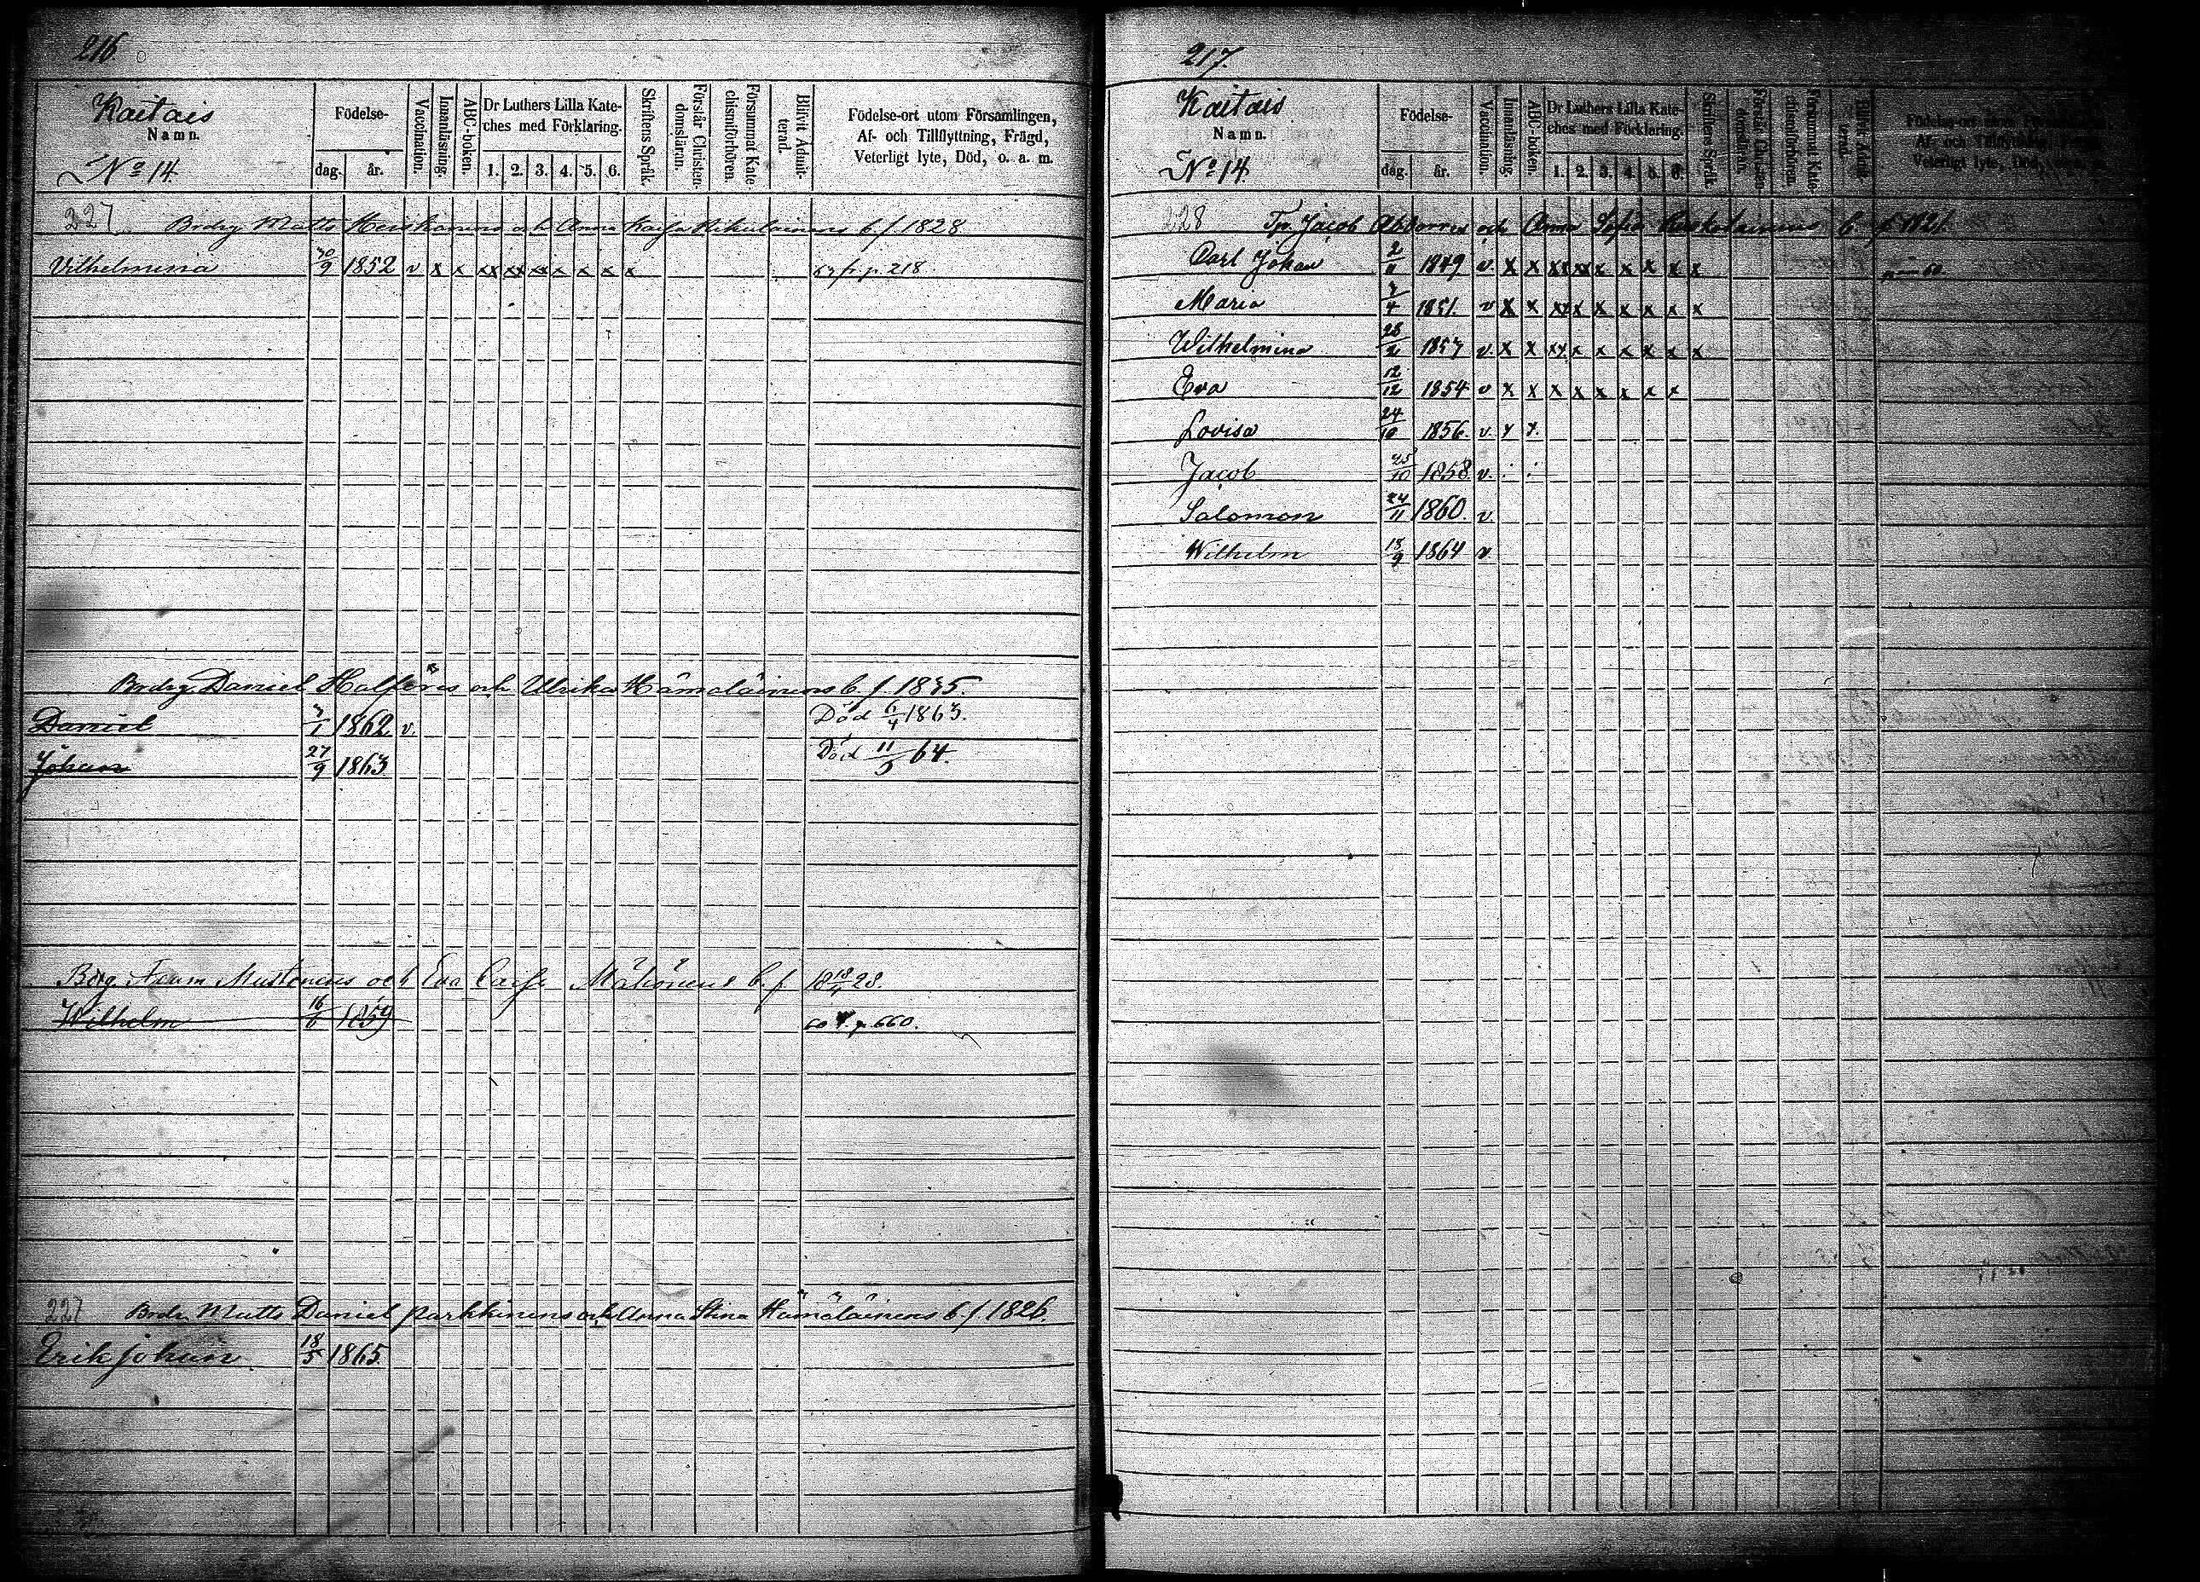 216.
Kaitais
Namn.
No 14.
Födelse-
dag. år.
Vaccination.
Innanläsning.
ABC-boken.
Dr Luthers Lilla Kate-
ches med Förklaring.
1. 2. 3. 4. 5. 6.
Skriftens Språk.
Förstår Christen-
domsläran.
Försummat Kate-
chismiförhören.
Blifvit Admit-
terad.
Födelse-ort utom Församlingen,
Af- och Tillflyttning, Frägd,
Veterligt lyte, Död, o. a. m.
227 Matts och Anna Kaisa b. f. 1828
Vilhelmina 30/9 1852 v x x xx xx xx x x x x p. 218.
Daniel och Ulrika Hämäläinens b. f. 1835.
Daniel 3/1 1862 v. Död 6/4 1863.
Johan 27/9 1863 Död 11/5 64.
Mustonens och Eva Caisa b. f. 18 18/4 28.
Wilhelm 16/6 1859 60 f. p. 660.
227 Matts Daniel Parkkinens och Anna Stina Hämäläinens b. f. 1826.
Erik Johan 18/5 1865.
217.
Kaitais
Namn.
No 14.
Födelse-
dag. år.
Vaccination.
Innanläsning.
ABC-boken.
Dr Luthers Lilla Kate-
ches med Förklaring.
1. 2. 3. 4. 5. 6.
Skriftens Språk.
Förstår Christen-
domsläran.
Försummat Kate-
chismiförhören.
Blifvit Admit-
terad.
Födelse-ort utom Församlingen,
Af- och Tillflyttning, Frägd,
Veterligt lyte, Död, o. a. m.
228 Jacob och Anna Sofia b. f. 1821.
Carl Johan 2/11 1849 v x x xx xx x x x x x
Maria 7/4 1851. v x x xx x x x x x x
Wilhelmina 28/2 1857 v. x x xx x x x x x x
Eva 12/12 1854 v x x x x x x x x
Lovisa 24/10 1856. v. x x.
Jacob 25/10 1858. v.
Salomon 24/11 1860. v.
Wilhelm 18/9 1864 v.